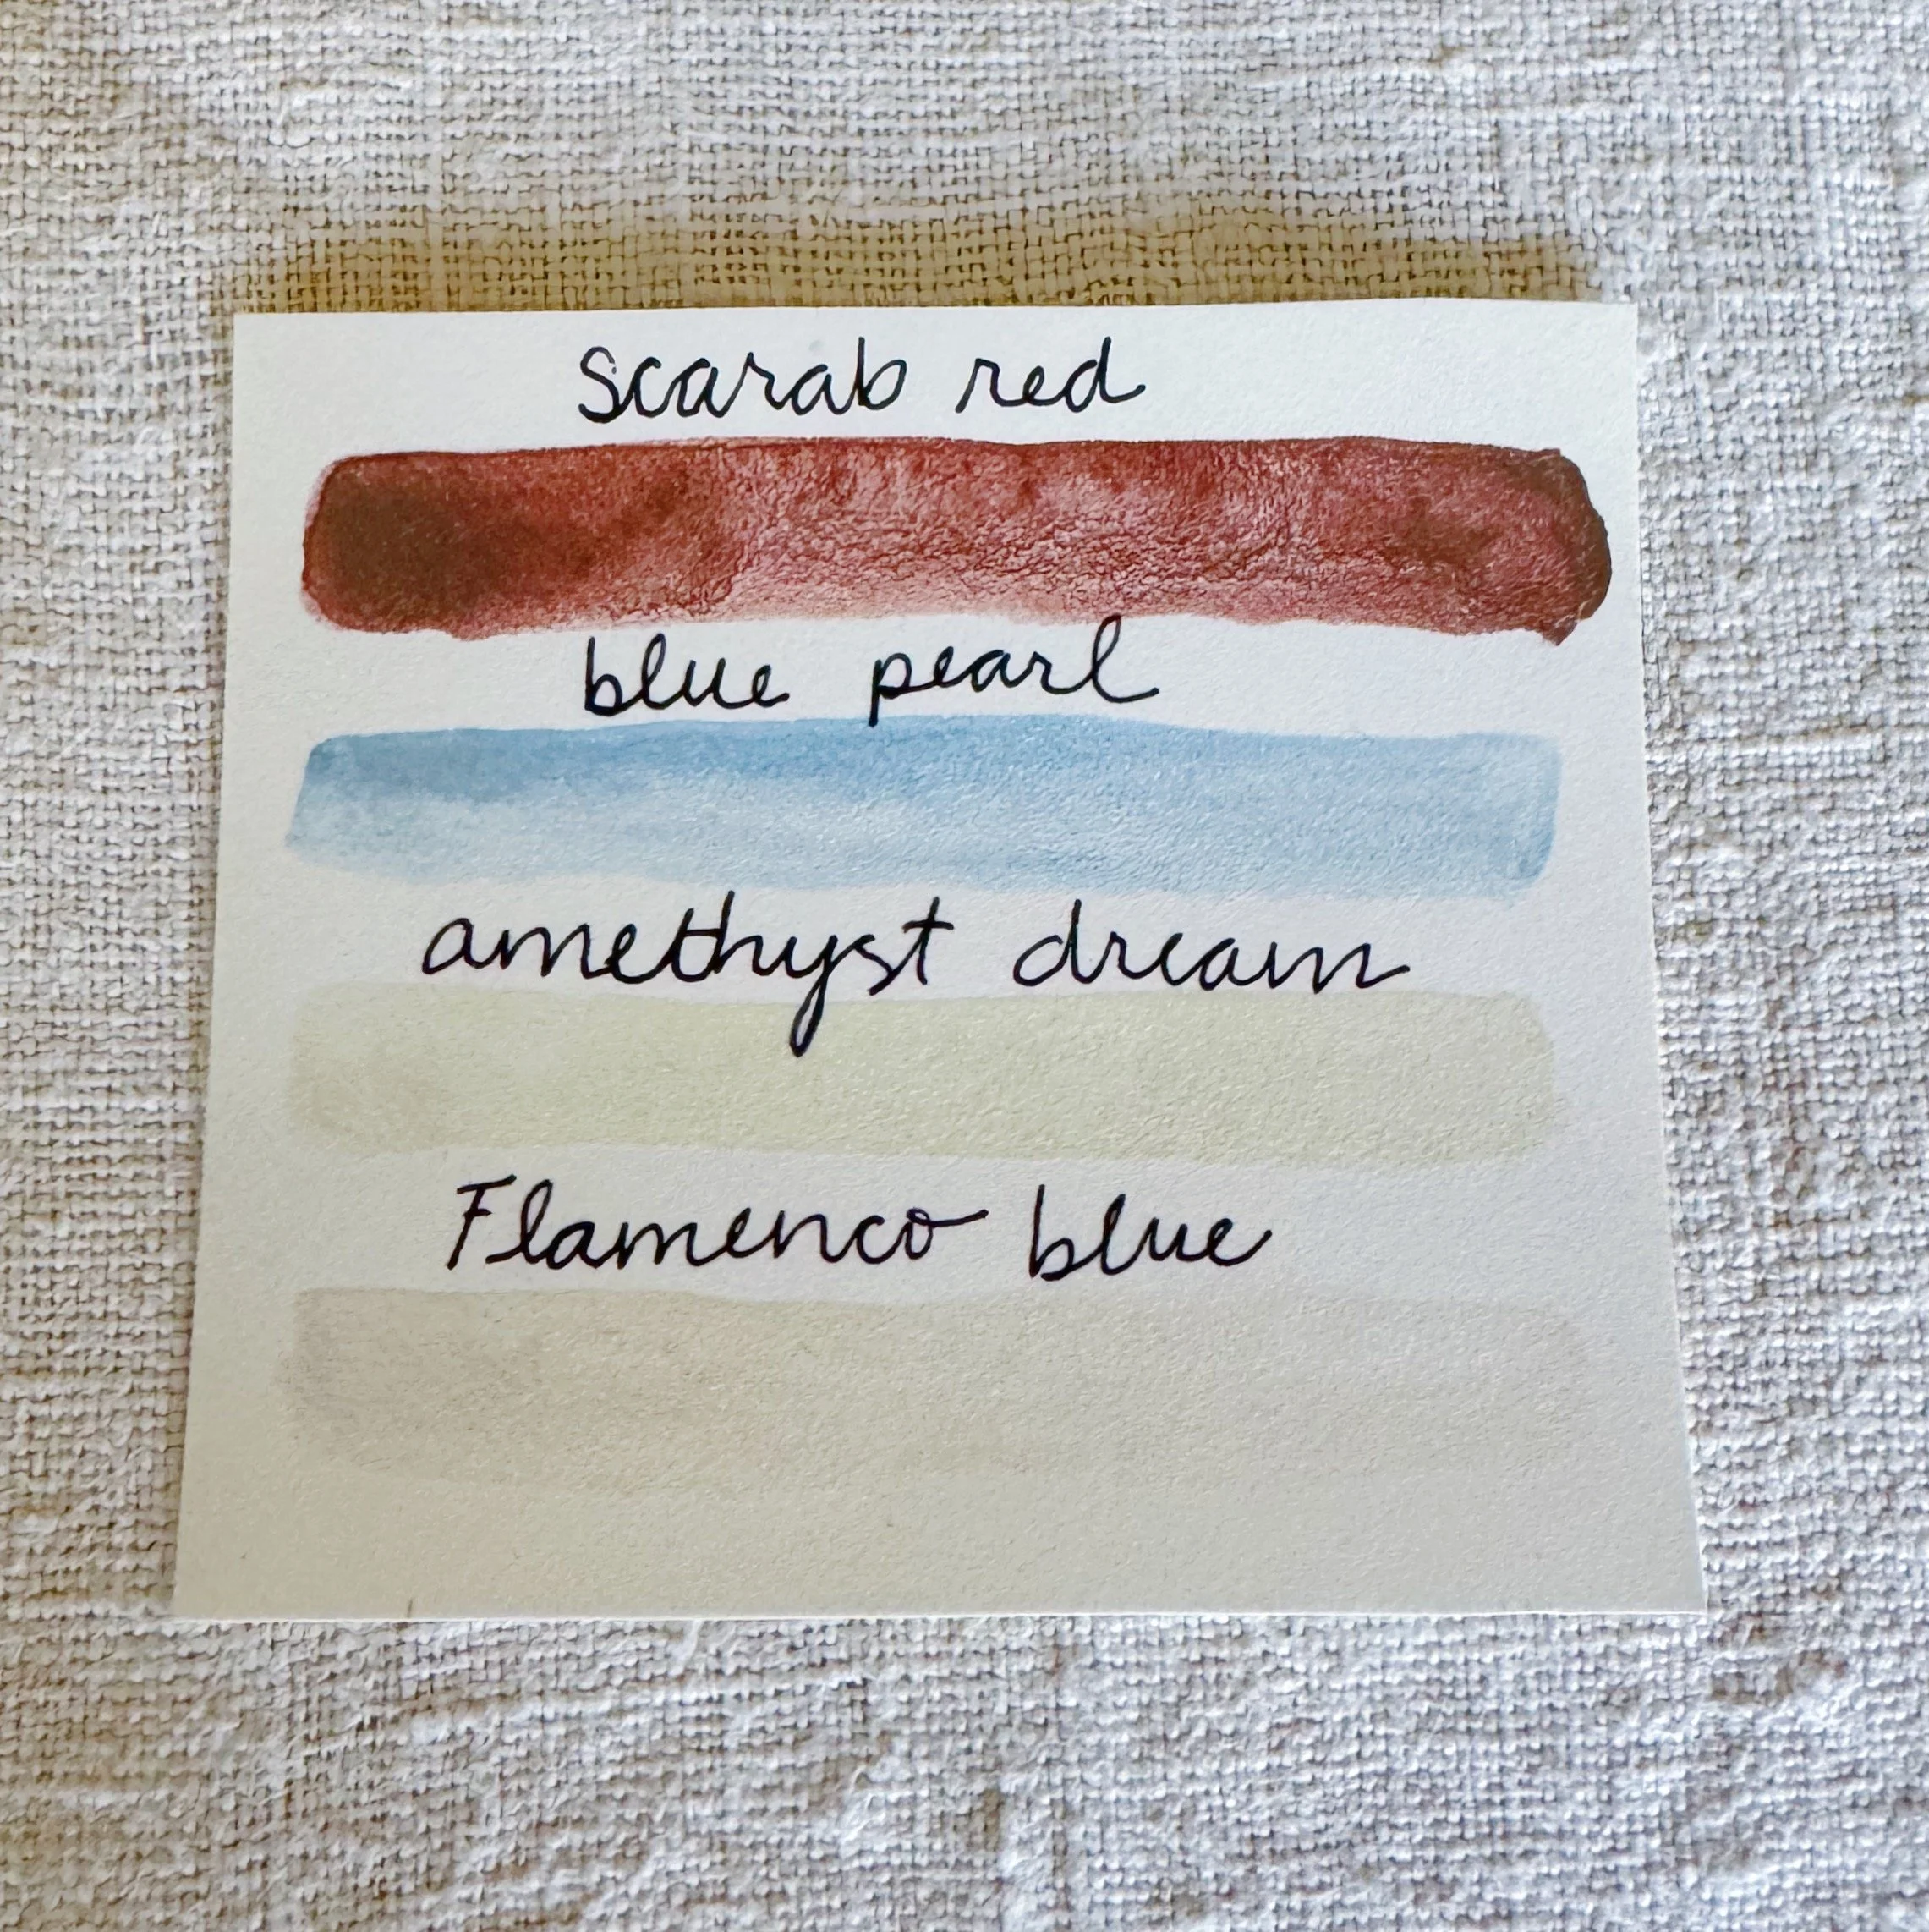 scarab red
blue pearl
amethyst dream
Flamenco blue